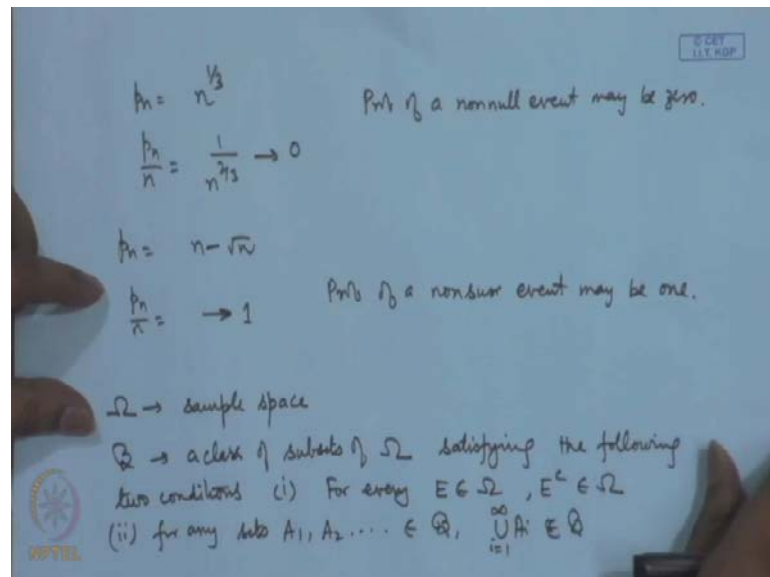 © CET
I.I.T. KGP
pₙ = n^{1/3}
Prob of a nonnull event may be zero.
pₙ/n = 1/n^{2/3} → 0
pₙ = n − √n
pₙ/n = → 1
Prob of a nonsure event may be one.
Ω → sample space
𝓑 → a class of subsets of Ω satisfying the following
two conditions (i) For every E ∈ Ω, E^c ∈ Ω
(ii) for any sets A₁, A₂ .... ∈ 𝓑, ∪_{i=1}^{∞} Aᵢ ∈ 𝓑
NPTEL